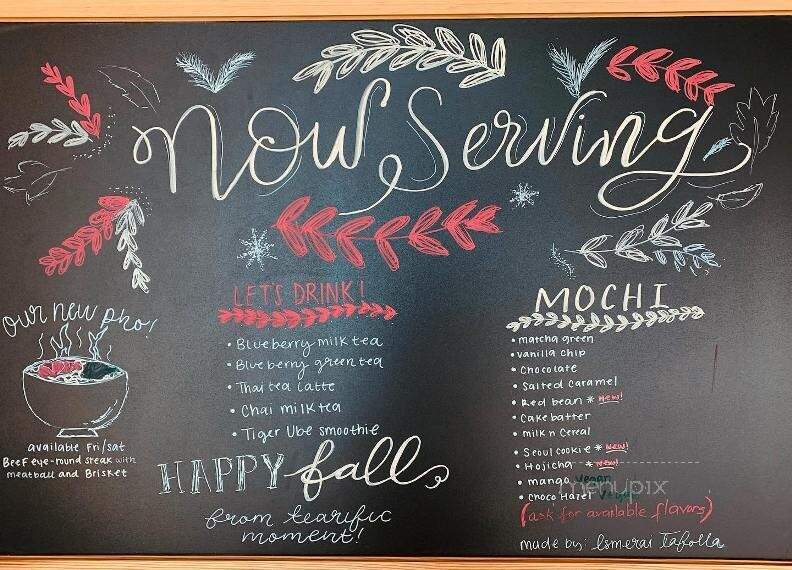 Now Serving
our new pho!
available Fri/sat
Beef eye-round steak with
meatball and Brisket
LET'S DRINK!
• Blueberry milk tea
• Blueberry green tea
• Thai tea latte
• Chai milk tea
• Tiger Ube smoothie
HAPPY fall
from tearific
moment!
MOCHI
• matcha green
• vanilla chip
• Chocolate
• Salted Caramel
• Red bean * New!
• Cake batter
• milk n cereal
• Seoul cookie * New!
• Hojicha * New!
• mango vegan
• choco Hazel vegan
menupix
(ask for available flavors)
made by: Esmerai Tafolla